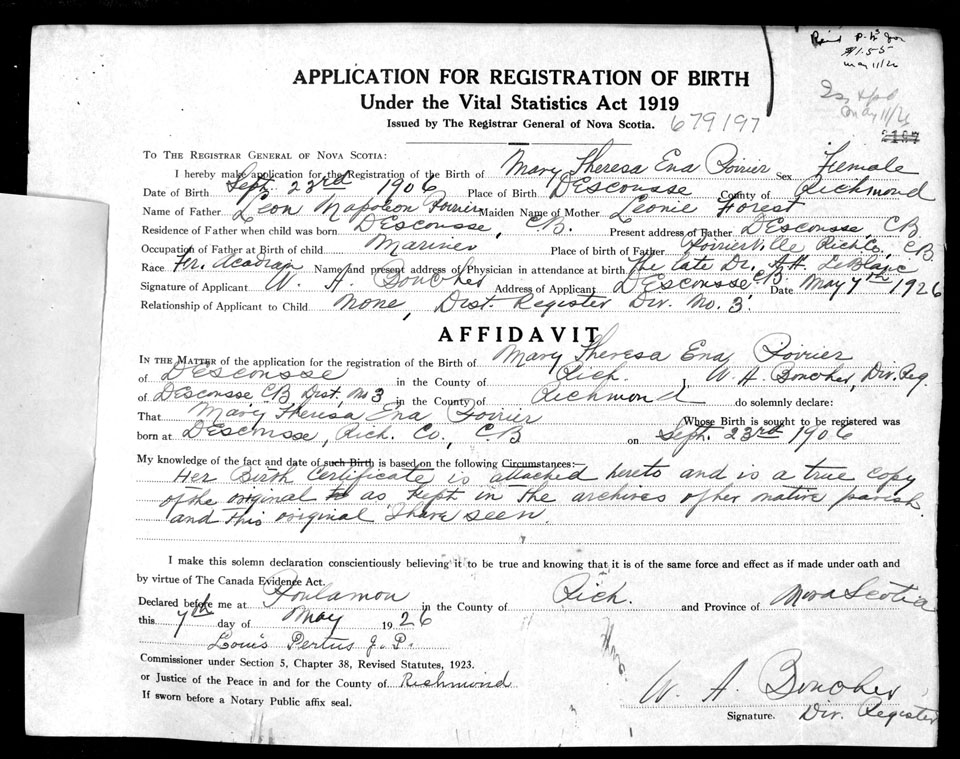 $1.55
May 11/26
APPLICATION FOR REGISTRATION OF BIRTH
Under the Vital Statistics Act 1919
Issued by The Registrar General of Nova Scotia.
679197
May 11/26
2197
TO THE REGISTRAR GENERAL OF NOVA SCOTIA:
I hereby make application for the Registration of the Birth of Mary Theresa Ena Poirier Sex Female
Date of Birth Sept. 23rd 1906 Place of Birth DEscousse County of Richmond
Name of Father Leon Napoleon Poirier Maiden Name of Mother Leonie Forest
Residence of Father when child was born DEscousse, C.B. Present address of Father DEscousse, C.B.
Occupation of Father at Birth of child Mariner Place of birth of Father Poirierville Rich Co., C.B
Race Fr. Acadian Name and present address of Physician in attendance at birth The late Dr. A.H. LeBlanc
Signature of Applicant W. A. Boucher Address of Applicant DEscousse CB Date May 7th 1926
Relationship of Applicant to Child None, Dist. Register Div. No. 3.
AFFIDAVIT
IN THE MATTER of the application for the registration of the Birth of Mary Theresa Ena Poirier
of DEscousse in the County of Rich. I, W. A. Boucher, Div. Reg.
of DEscousse CB Dist. No 3 in the County of Richmond do solemnly declare:
That Mary Theresa Ena Poirier Whose Birth is sought to be registered was
born at DEscousse, Rich. Co., CB on Sept. 23rd 1906
My knowledge of the fact and date of such Birth is based on the following Circumstances:—
Her Birth Certificate is attached hereto and is a true copy
of the original as kept in the archives of her native parish
and this original I have seen.
I make this solemn declaration conscientiously believing it to be true and knowing that it is of the same force and effect as if made under oath and
by virtue of The Canada Evidence Act.
Declared before me at Poulamon in the County of Rich. and Province of Nova Scotia
this 7th day of May 1926
Louis Pertus J.P.
Commissioner under Section 5, Chapter 38, Revised Statutes, 1923.
or Justice of the Peace in and for the County of Richmond
If sworn before a Notary Public affix seal.
W. A. Boucher
Signature. Div. Register